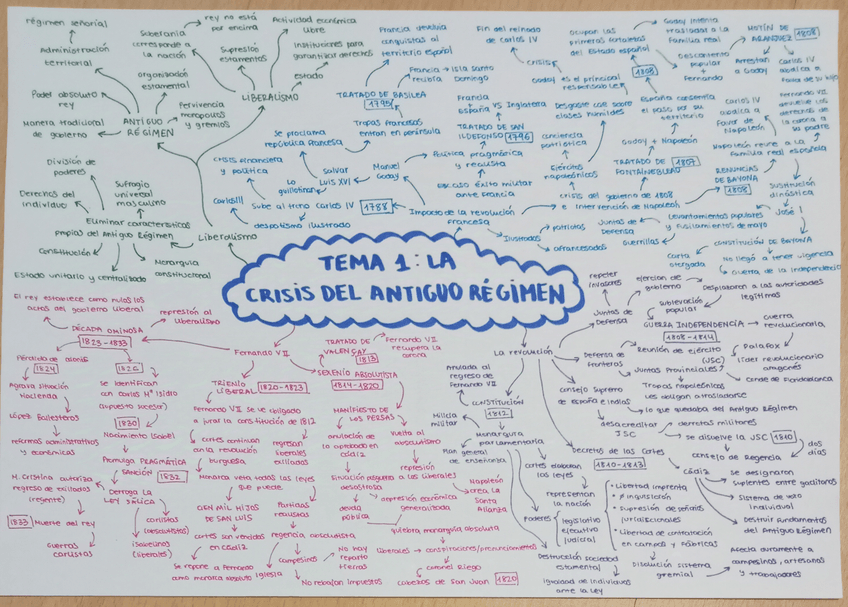 régimen señorial
Administración
territorial
Soberanía
corresponde a
la nación
rey no está
por encima
Actividad económica
libre
Supresión
estamentos
Instituciones para
garantizar derechos
estado
organización
estamental
Poder absoluto
rey
Pervivencia
monopolios
y gremios
LIBERALISMO
ANTIGUO
RÉGIMEN
Manera tradicional
de gobierno
División de
poderes
Sufragio
universal
masculino
Derechos del
individuo
Eliminar características
propias del Antiguo Régimen
Liberalismo
Constitución
Monarquía
constitucional
Estado unitario y centralizado
Francia devuelve
conquistas al
territorio español
Francia → isla santo
recibía Domingo
TRATADO DE BASILEA
1795
Se proclama
república francesa
Tropas francesas
entran en península
crisis financiera
y política
Lo
guillotinan
salvar
LUIS XVI
Manuel
Godoy
Carlos III
Sube al trono Carlos IV
1788
despotismo ilustrado
Impacto de la revolución
francesa
Fin del reinado
de Carlos IV
crisis
Godoy es el principal
responsable
Francia
+
España VS Inglaterra
TRATADO DE SAN
ILDEFONSO 1796
Política pragmática
y realista
Escaso éxito militar
ante Francia
Ocupan las
primeras fortalezas
del Estado español
1808
Godoy intenta
trasladar a la
Familia real
MOTÍN DE
ARANJUEZ 1808
Descontento
popular
+
Fernando
Arrestan
a Godoy
Carlos IV
abdica a
favor de su hijo
Disgusto cae sobre
clases humildes
conciencia
patriótica
Ejércitos
napoleónicos
España consentía
el paso por su
territorio
Godoy + Napoleón
TRATADO DE 1807
FONTAINEBLEAU
Carlos IV
abdica a
favor de
Napoleón
Fernando VII
devuelve los
derechos de
la corona a
su padre
Napoleón reúne a la
Familia real española
RENUNCIAS
DE BAYONA
1808
sustitución
dinástica
José I
crisis del gobierno de 1808
e Intervención de Napoleón
Ilustrados
patriotas
afrancesados
Juntas de
Defensa
Guerrillas
Levantamientos populares
y fusilamientos de mayo
CONSTITUCIÓN DE BAYONA
Carta
otorgada
No llegó a tener vigencia
guerra de la independencia
TEMA 1: LA
CRISIS DEL ANTIGUO RÉGIMEN
El rey establece como nulos los
actos del gobierno liberal
represión al
liberalismo
DÉCADA OMINOSA
1823-1833
Pérdida de colonias
1824
Agrava situación
Hacienda
López Ballesteros
reformas administrativas
y económicas
1826
se identifican
con Carlos Mª Isidro
(supuesto sucesor)
1830
Nacimiento Isabel
Promulga PRAGMÁTICA
SANCIÓN 1832
Deroga la
LEY SÁLICA
M. Cristina autoriza
regreso de exiliados
(regente)
1833 Muerte del rey
Guerras
carlistas
carlistas
(absolutistas)
isabelinos
(liberales)
Fernando VII
TRIENIO
LIBERAL 1820-1823
Fernando VII se ve obligado
a jurar la constitución de 1812
cortes continúan
con la revolución
burguesa
regresan
liberales
exiliados
Monarca veta todas las leyes
que puede
CIEN MIL HIJOS
DE SAN LUIS
Partidas
realistas
cortes son vencidas
en Cádiz
regencia absolutista
Se repone a Fernando
como monarca absoluto
Iglesia
campesinos
No hay
reparto
tierras
No rebajan impuestos
TRATADO DE
VALENÇAY
1813
Fernando VII
recupera la
corona
SEXENIO ABSOLUTISTA
1814-1820
MANIFIESTO DE
LOS PERSAS
anulación de
lo aprobado en
Cádiz
vuelta al
absolutismo
represión
Situación posguerra a los liberales
desastrosa
depresión económica
generalizada
deuda
pública
Napoleón
crea la
Santa
Alianza
quiebra monarquía absoluta
Liberales → conspiraciones/pronunciamientos
coronel Riego
cabezas de San Juan 1820
La revolución
Anulada al
regreso de
Fernando VII
CONSTITUCIÓN
1812
Milicia
militar
Monarquía
parlamentaria
Plan general
de enseñanza
repeler
invasores
Juntas de
Defensa
ejercían de
gobierno
sublevación
popular
Desplazaron a las autoridades
legítimas
GUERRA INDEPENDENCIA
1808-1814
guerra
revolucionaria
Defensa de
fronteras
Reunión de ejército
(JSC)
Juntas Provinciales
Palafox
líder revolucionario
aragonés
conde de Floridablanca
Tropas napoleónicas
les obligan a trasladarse
consejo Supremo
de España e Indias
lo que quedaba del Antiguo Régimen
desacreditar
JSC
derrotas militares
se disuelve la JSC 1810
consejo de Regencia
dos
días
Decretos de las Cortes
1810-1813
Cádiz
se designaron
suplentes entre gaditanos
Sistema de voto
individual
Destruir fundamentos
del Antiguo Régimen
cortes elaboran
las leyes
representan la
nación
Poderes
legislativo
ejecutivo
judicial
• Libertad imprenta
• Ø Inquisición
• Supresión de señoríos
jurisdiccionales
• Libertad de contratación
en campos y fábricas
Destrucción sociedad
estamental
Igualdad de individuos
ante la ley
Disolución sistema
gremial
Afecta duramente a
campesinos, artesanos
y trabajadores